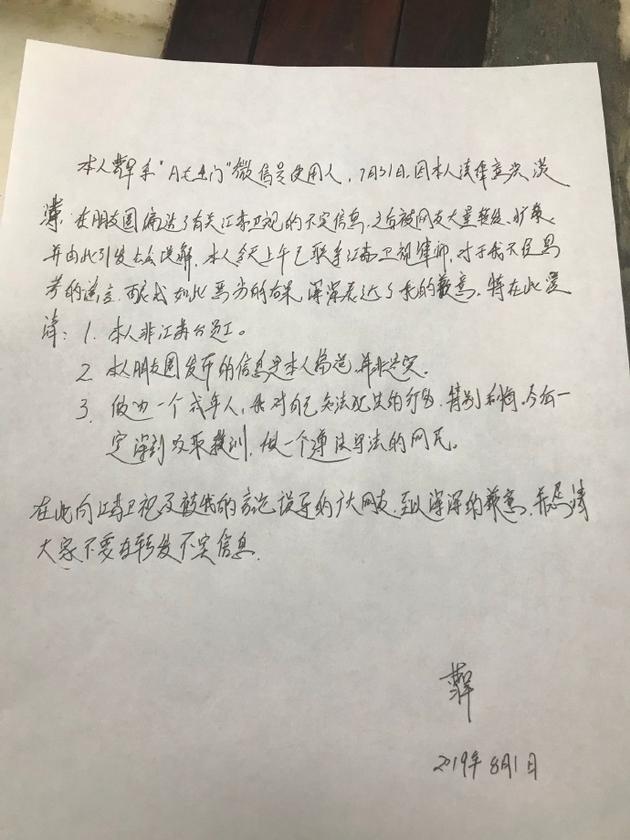 本人系"月七土门"微信号使用人，7月31日，因本人法律意识淡
薄，在朋友圈编造了有关江苏卫视的不实信息，之后被网友大量转发、扩散，
并由此引发社会误解，本人今天上午已联系江苏卫视律师，对于我不经思
考的谣言，酿成如此恶劣的后果，深深表达了我的歉意，特在此澄
清：1. 本人非江苏台员工。
2. 本人朋友圈发布的信息是本人编造，并非史实。
3. 做为一个成年人，我对自己无法犯其的行为，特别后悔，今后一
定深刻吸取教训，做一个遵法守法的网民。
在此向江苏卫视及被我的言论误导的广大网友，至以深深的歉意，并恳请
大家不要在转发不实信息.
2019年8月1日